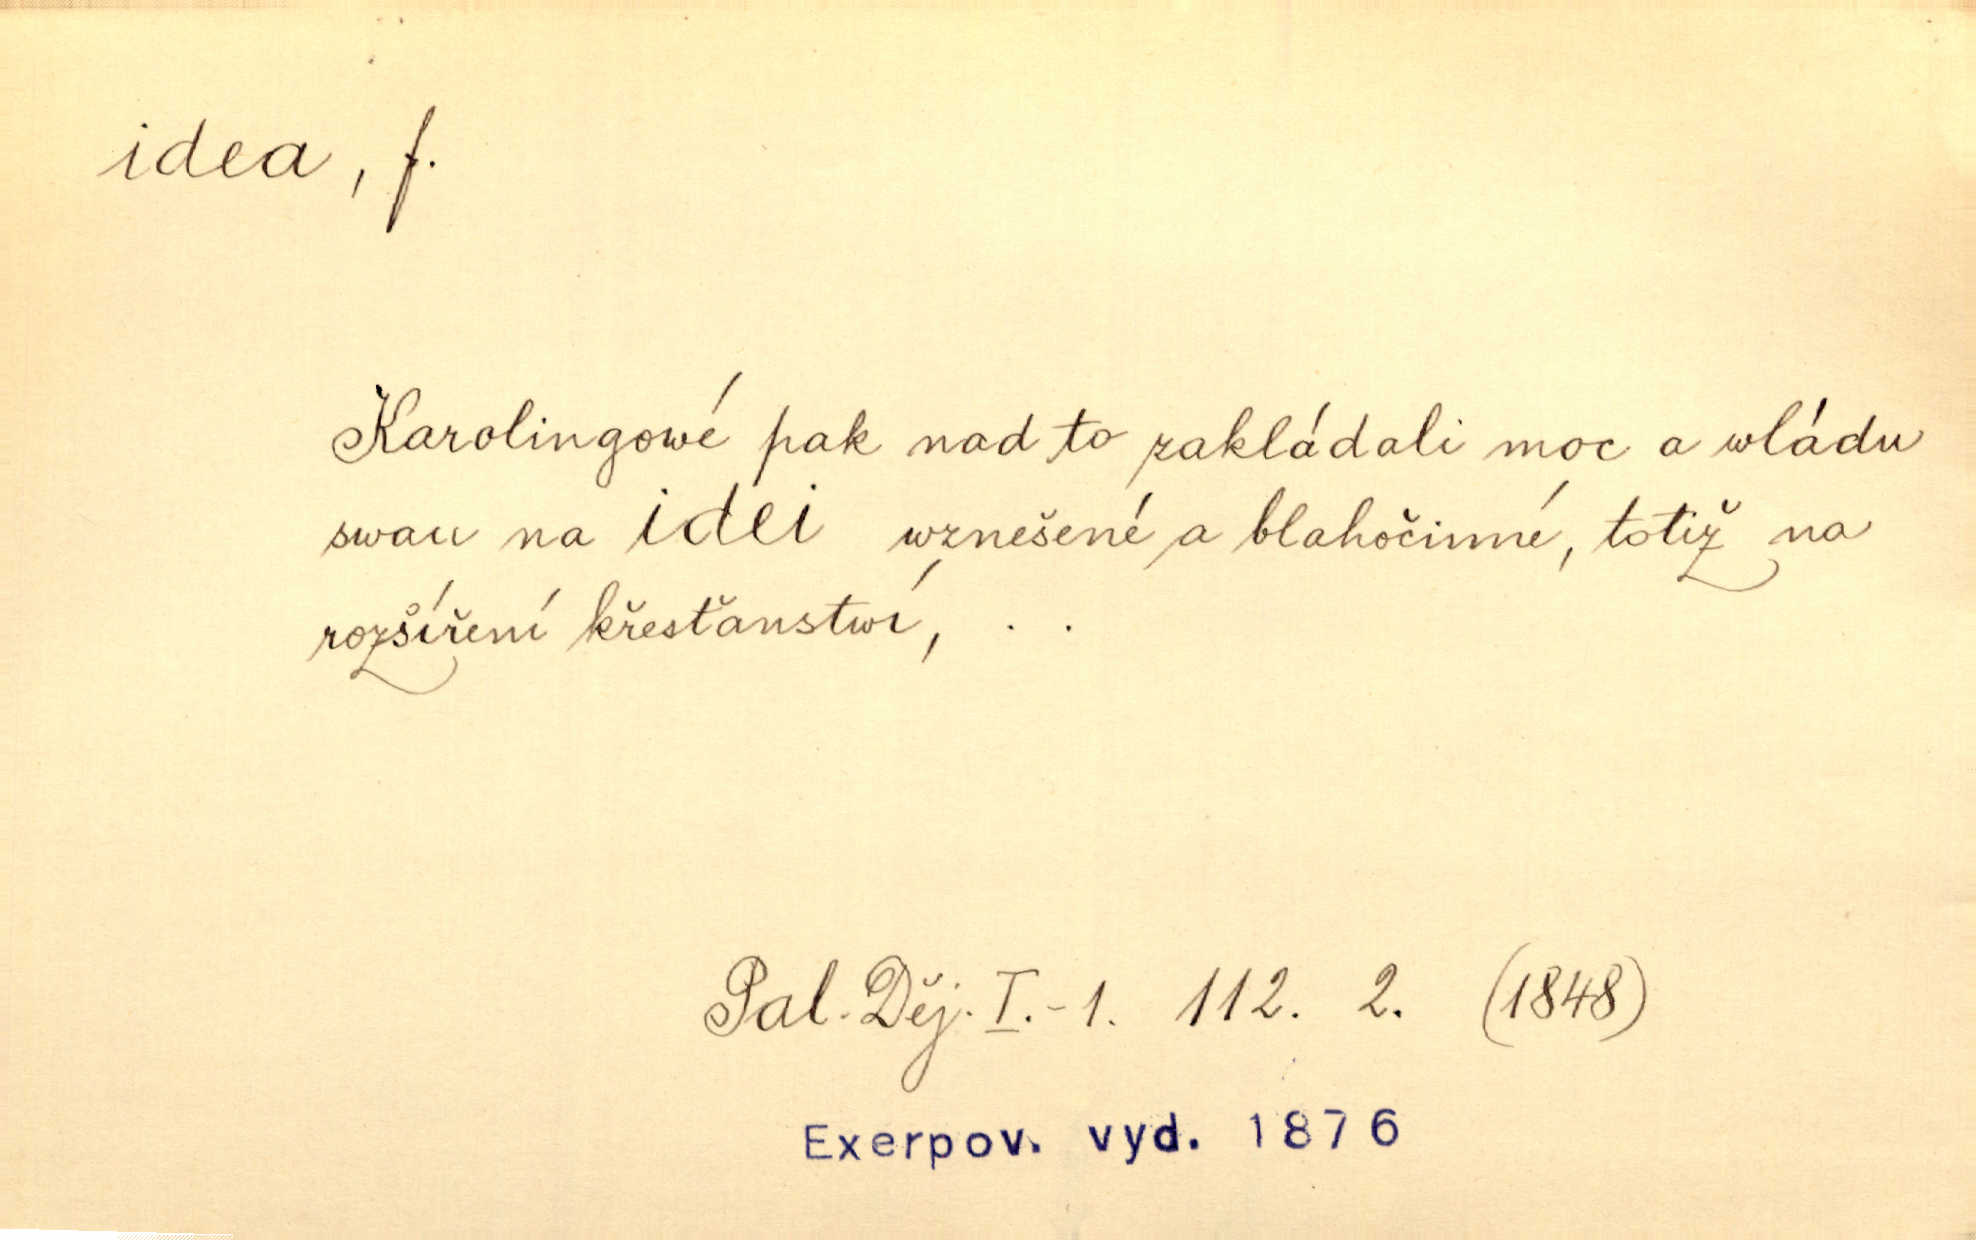 idea, f.
Karolingowé pak nad to zakládali moc a wládu
swau na idei wznešené a blahočinné, totiž na
rozšíření křesťanstwí, . .
Pal. Děj. I.-1. 112. 2. (1848)
Exerpov. vyd. 1876